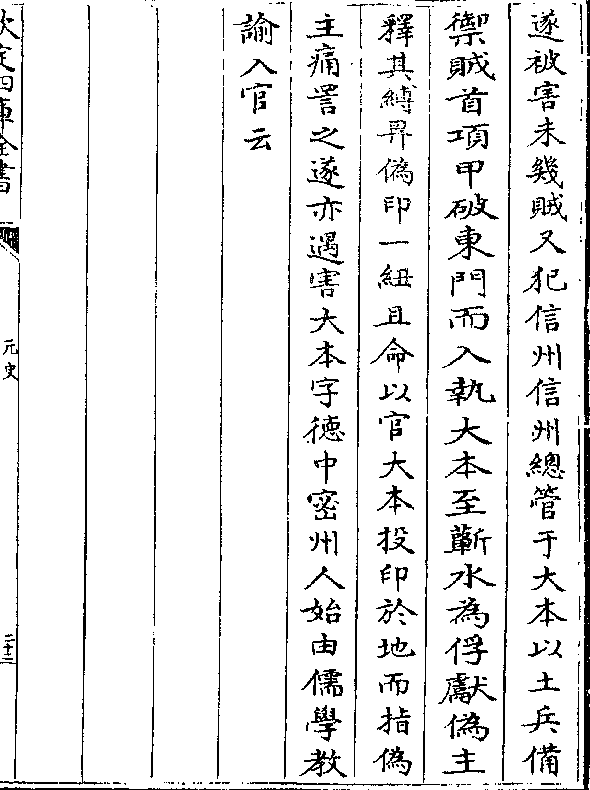 遂被害未幾賊又犯信州信州總管于大本以土兵備
禦賊首項甲破東門而入執大本至蘄水為俘獻偽主
釋其縛畀偽印一紐且命以官大本投印於地而指偽
主痛詈之遂亦遇害大本字徳中密州人始由儒學教
諭入官云
欽定四庫全書
元史
二十二